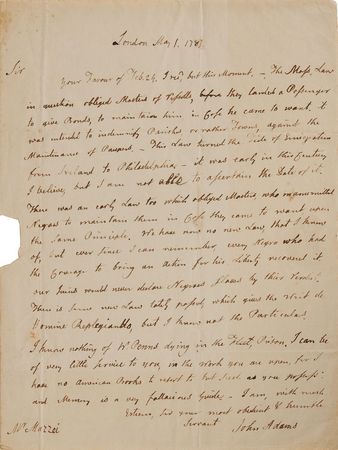 London May 1. 1787
Sir
Your Favour of Feb. 24, I recd but this Moment. — The Mass. Law
in question obliged Masters of Vessells, before they landed a Passenger
to give Bonds, to maintain him in Case he came to want. it
was intended to indemnify Parishes or rather Towns, against the
Maintenance of Paupers. — This Law turned the Tide of Emigration
from Ireland to Philadelphia — it was early in this Century
I believe, but I am not able to ascertain the Date of it.
There was an early Law too which obliged Masters, who manumitted
Negroes to maintain them in Case they came to want upon
the same Principle. We have now no new Law, that I know
of, but ever since I can remember, every Negro who had
the Courage to bring an Action for his Liberty recovered it
our Juries would never declare Negroes Slaves by their Verdict.
There is some new Law lately passed, which gives the Writ de
Homine Replegiando, but I know not the Particulars.
I know nothing of Wm Penns dying in the Fleet Prison. I can be
of very little service to you, in the Work you are upon, for I
have no American Books to resort to but such as you possess
and Memory is a very fallacious Guide. — I am, with much
Esteem, Sir your most obedient & humble
Servant John Adams
Mr Mazzei